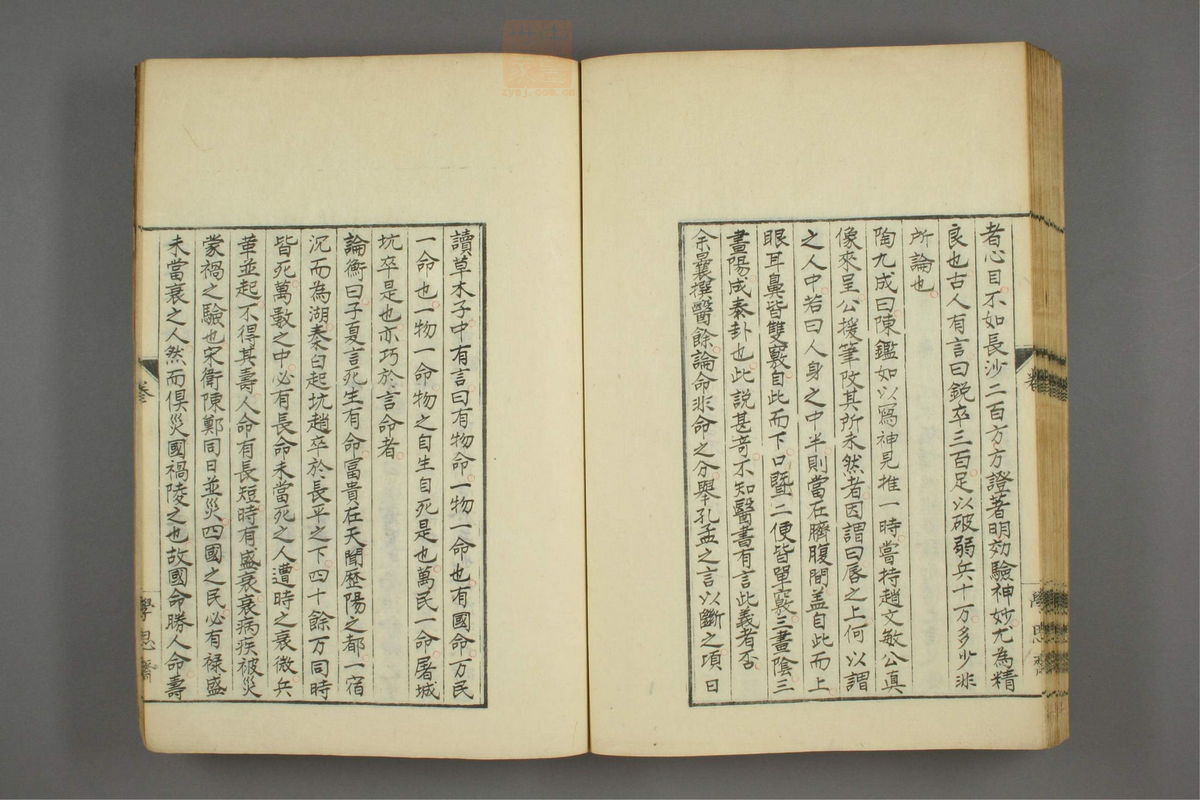 者心目不如長沙二百方方證著明効驗神妙尤為精
良也古人有言曰鋭卒三百足以破弱兵十万多少非
所論也
陶九成曰陳鑑如以為神見推一時嘗持趙文敏公真
像來呈公援筆改其所未然者因謂曰唇之上何以謂
之人中若曰人身之中半則當在臍腹間盖自此而上
眼耳鼻皆雙竅自此而下口暨二便皆單竅三畫陰三
畫陽成泰卦也此説甚竒不知醫書有言此義者否
余曩撰醫餘論命非命之分舉孔孟之言以斷之項日
讀草木子中有言曰有物命一物一命也有國命万民
一命也一物一命物之自生自死是也萬民一命屠城
坑卒是也亦巧於言命者
論衡曰子夏言死生有命富貴在天聞歷陽之都一宿
沉而為湖秦白起坑趙卒於長平之下四十餘万同時
皆死萬數之中必有長命未當死之人遭時之衰微兵
革並起不得其壽人命有長短時有盛衰衰病疾被災
蒙禍之驗也宋衛陳鄭同日並災四國之民必有禄盛
未當衰之人然而俱災國禍陵之也故國命勝人命壽
卷
學思齋